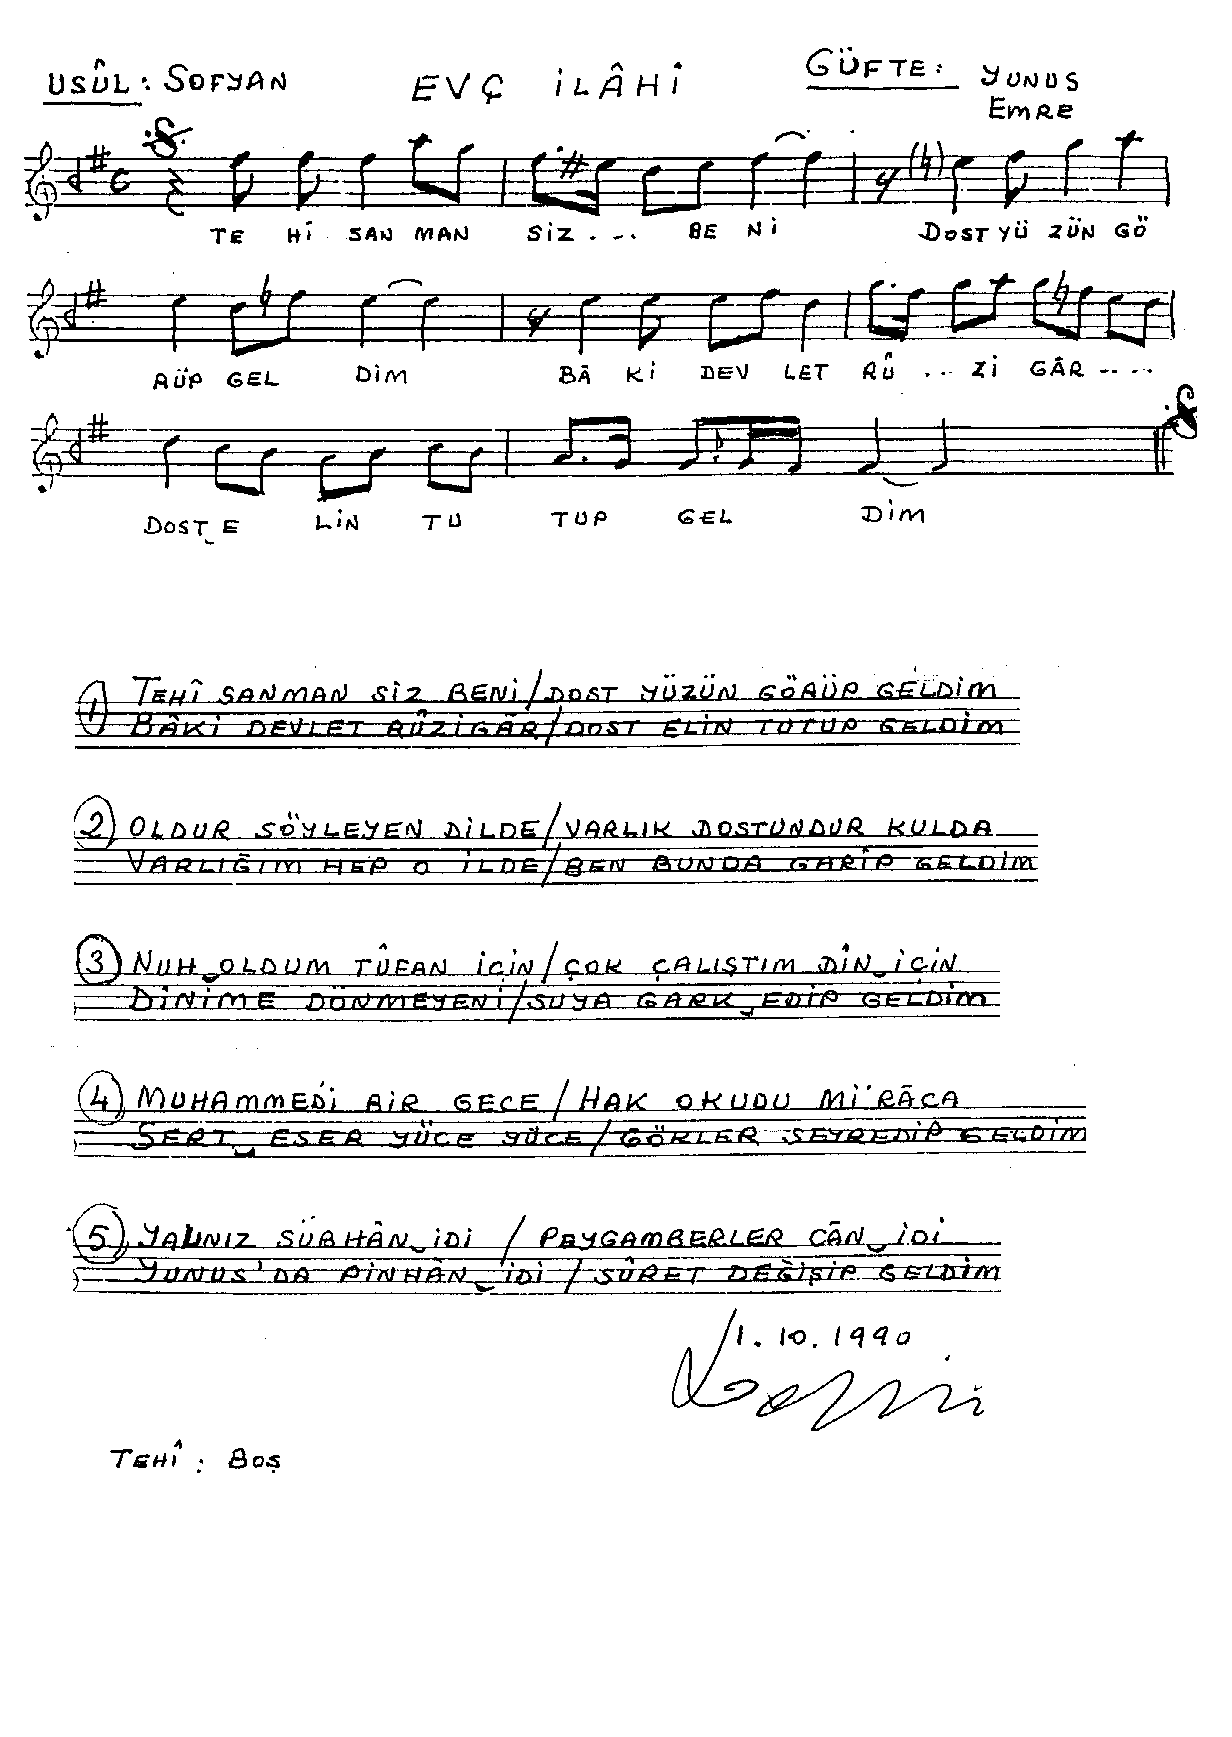 USÛL: SOFYAN EVÇ İLÂHİ GÜFTE: YUNUS
EMRE
TE Hİ SAN MAN SİZ . . . BE Nİ DOST YÜ ZÜN GÖ
RÜP GEL DİM BÂ Kİ DEV LET RÛ . . . Zİ GÂR . . . .
DOST E LİN TU TUP GEL DİM
1 TEHÎ SANMAN SİZ BENİ / DOST YÜZÜN GÖRÜP GELDİM
BÂKİ DEVLET RÛZİGÂR / DOST ELİN TUTUP GELDİM
2 OLDUR SÖYLEYEN DİLDE / VARLIK DOSTUNDUR KULDA
VARLIĞIM HEP O İLDE / BEN BUNDA GARİP GELDİM
3 NUH OLDUM TÛFAN İÇİN / ÇOK ÇALIŞTIM DÎN İÇİN
DİNİME DÖNMEYENİ / SUYA GARK EDİP GELDİM
4 MUHAMMEDİ BİR GECE / HAK OKUDU Mİ'RÂCA
SERT ESER YÜCE YÜCE / GÖKLER SEYREDİP GELDİM
5 YALINIZ SÜBHÂN İDİ / PEYGAMBERLER CÂN İDİ
YUNUS'DA PİNHÂN İDİ / SÛRET DEĞİŞİP GELDİM
1.10.1990
TEHÎ : BOŞ